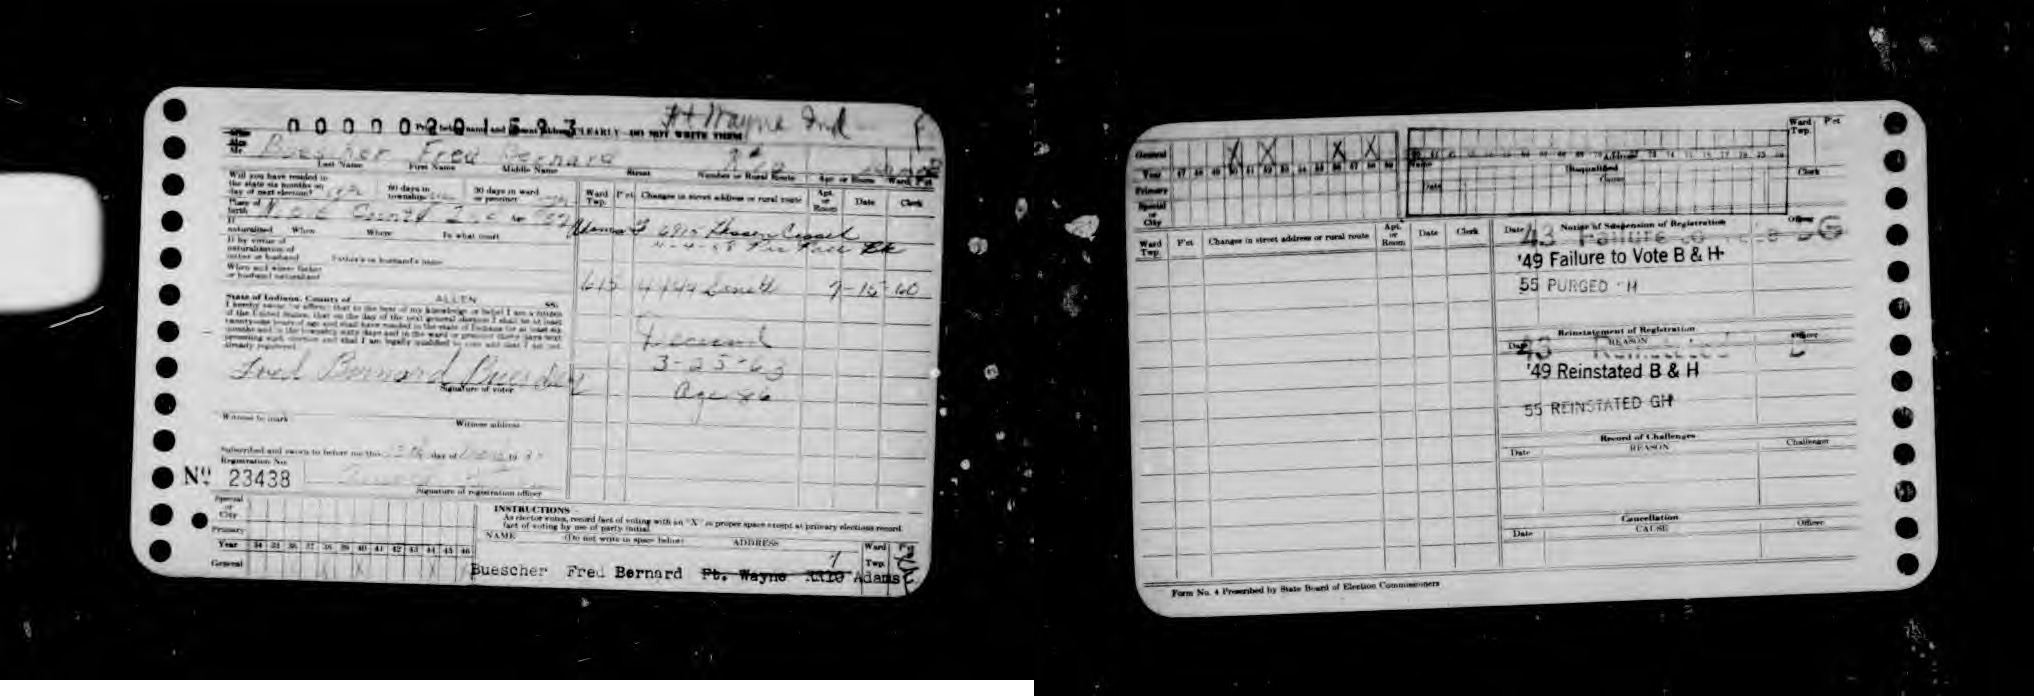 00000201593
PLEARLY DO NOT WRITE THEM
Ft Wayne Ind
Mr. Buescher Fred Bernard
Last Name First Name Middle Name Street Number or Rural Route Apt. or Room Ward P'ct
Will you have resided in
the state six months on
day of next election?
60 days in
township
30 days in ward
or precinct
Ward Twp. P'ct Changes in street address or rural route Apt. or Room Date Clerk
Place of
birth
County Ind Age
Adams 7 6915 Hessen Cassel
4-4-58
If
naturalized When Where In what court
If by virtue of
naturalization of
father or husband
Father's or husband's name
When and where father
or husband naturalized
615 4144 9-15-60
State of Indiana, County of ALLEN SS:
I hereby swear or affirm that to the best of my knowledge or belief I am a citizen
of the United States, that on the day of the next general election I shall be at least
twenty-one years of age and shall have resided in the state of Indiana for at least six
months and in the township sixty days and in the ward or precinct thirty days next
preceding such election and that I am legally qualified to vote and that I am not
already registered.
Deceased
3-25-63
Age 86
Fred Bernard Buescher
Signature of voter
Witness to mark Witness address
Subscribed and sworn to before me this day of
Registration No.
No. 23438
Signature of registration officer
Special
or
City
Primary
Year 34 35 36 37 38 39 40 41 42 43 44 45 46
General
INSTRUCTIONS
As elector votes, record fact of voting with an "X" in proper space except at primary elections record
fact of voting by use of party initial.
NAME (Do not write in space below) ADDRESS Ward
Twp.
7
Buescher Fred Bernard Ft. Wayne Adams
General X X X X
Year 47 48 49 50 51 52 53 54 55 56 57 58 59
Primary
Special
or
City
Name Address
Disqualified
Date Cause
Ward
Twp. P'ct
Clerk
Ward
Twp. P'ct Changes in street address or rural route Apt. or Room Date Clerk
Date Notice of Suspension of Registration Officer
43 Failure to Vote
'49 Failure to Vote B & H
55 PURGED H
Reinstatement of Registration
Date REASON Officer
43 Reinstated
'49 Reinstated B & H
55 REINSTATED GH
Record of Challenges
Date REASON Challenger
Cancellation
Date CAUSE Officer
Form No. 4 Prescribed by State Board of Election Commissioners